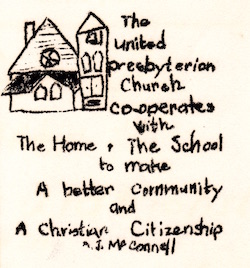 The
United
Presbyterian
Church
co-operates
with
The Home & The School
to make
A better Community
and
A Christian Citizenship
A. J. McConnell